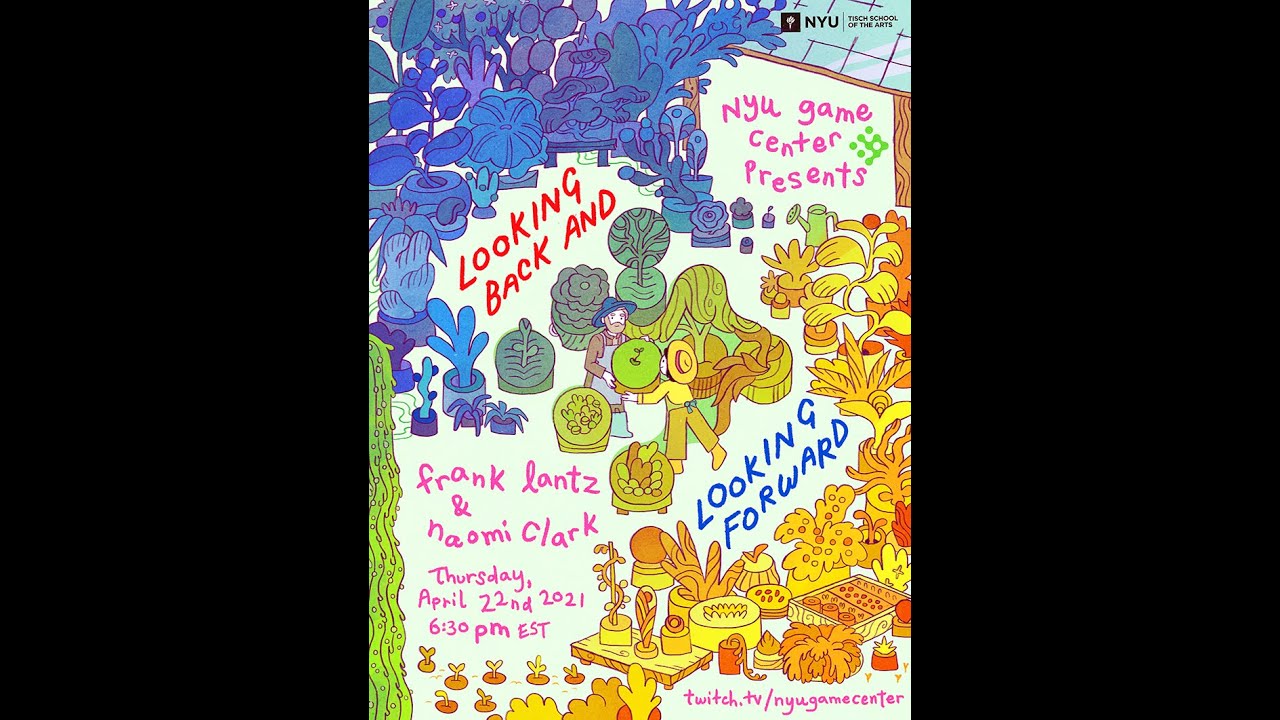 NYU
TISCH SCHOOL
OF THE ARTS
NYU game
center
Presents
LOOKING
BACK AND
LOOKING
FORWARD
frank lantz
&
naomi Clark
Thursday,
April 22nd 2021
6:30 pm EST
twitch.tv/nyugamecenter